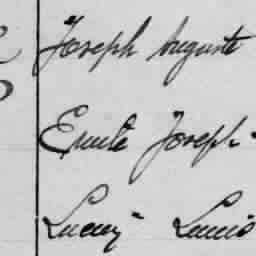 Joseph Auguste
Emile Joseph
Lucien Louis